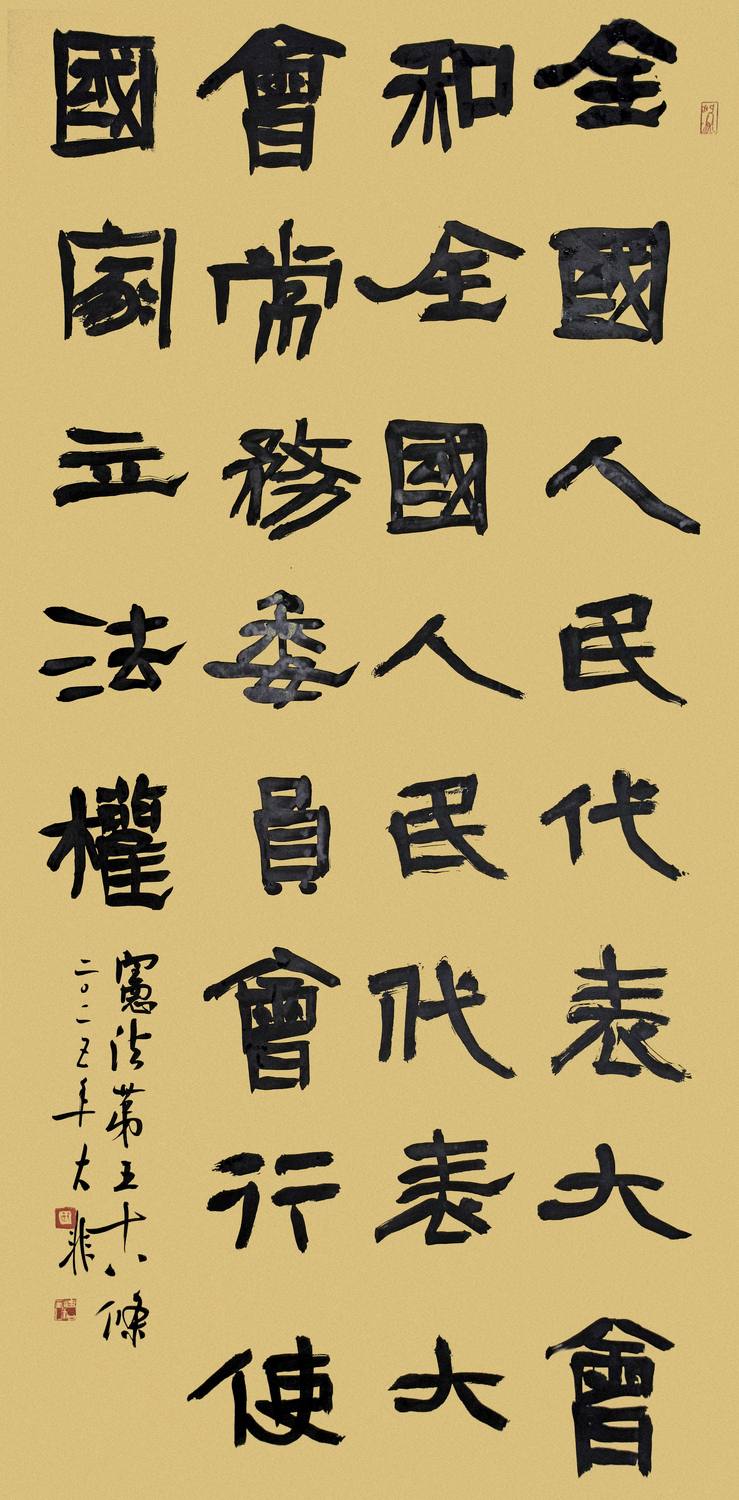 全國人民代表大會
和全國人民代表大
會常務委員會行使
國家立法權
憲法第五十八條
二〇二五年大非